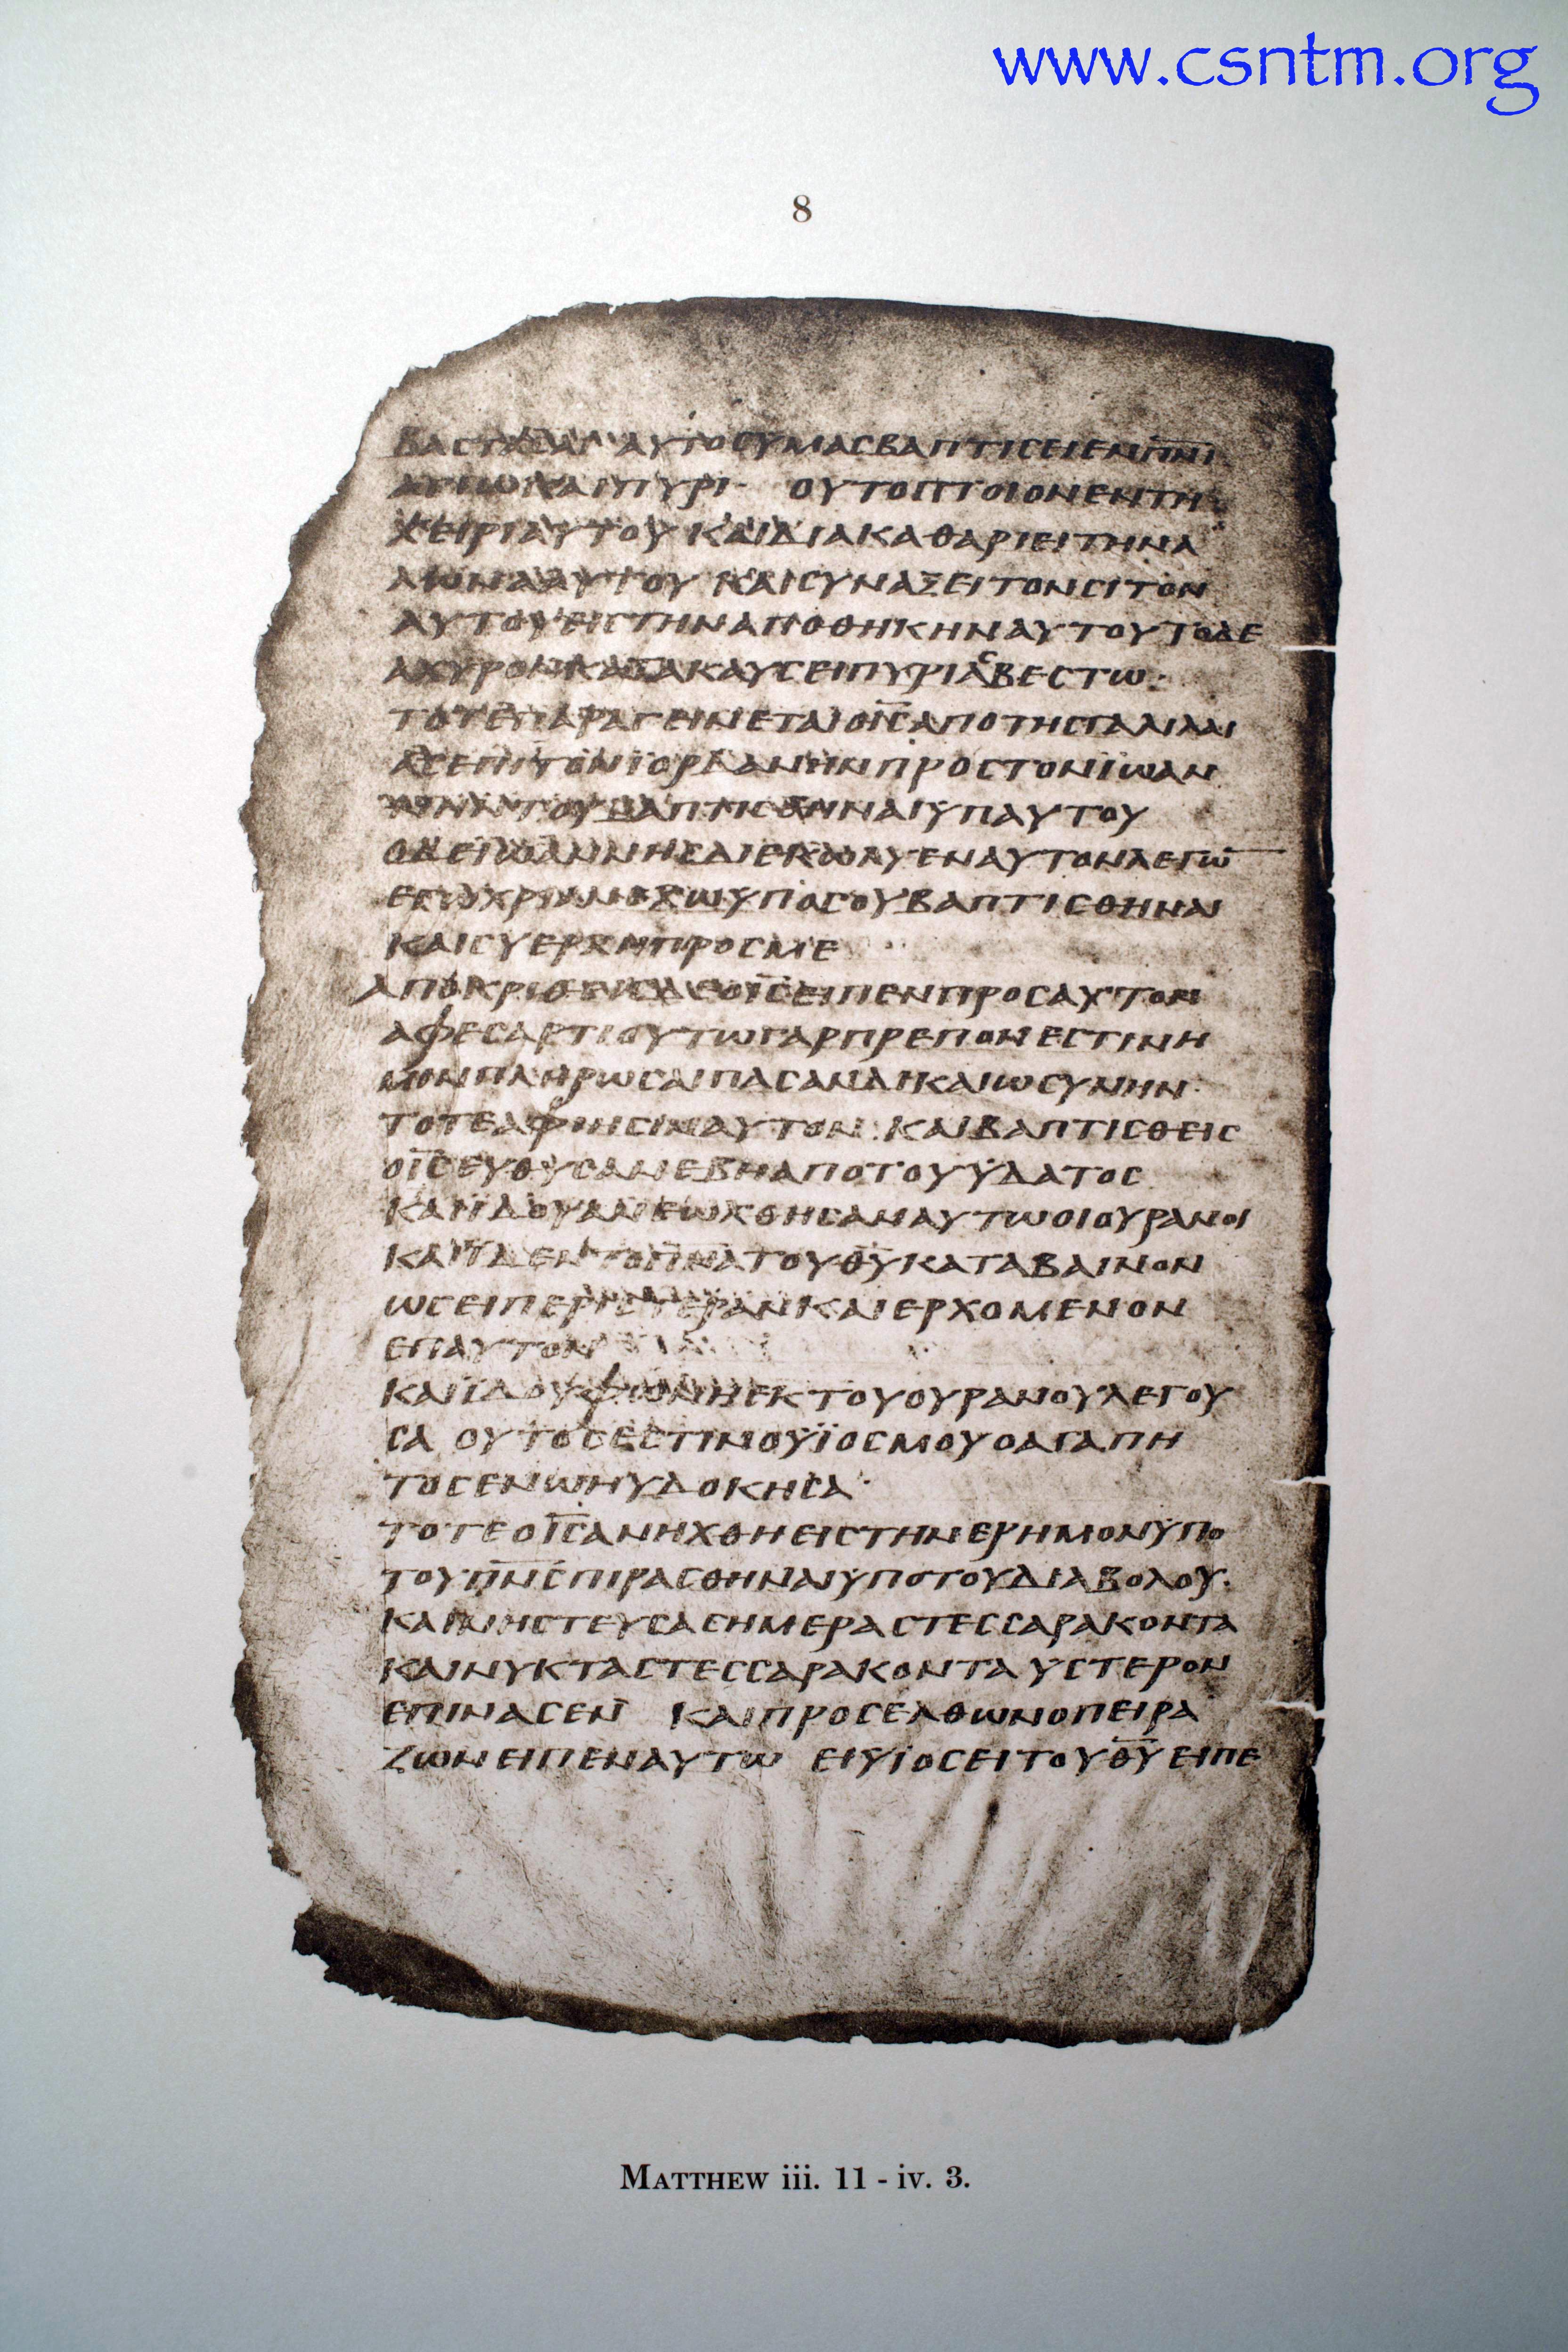 www.csntm.org
8
ΒΑΣΤΑΣΑΙ ΑΥΤΟϹΥΜΑϹΒΑΠΤΙϹΕΙΕΝΠ̅Ν̅Ι̅
ΑΓΙΩΚΑΙΠΥΡΙ· ΟΥΤΟΠΤΥΟΙΟΝΕΝΤΗ
ΧΕΙΡΙΑΥΤΟΥ ΚΑΙΔΙΑΚΑΘΑΡΙΕΙΤΗΝΑ
ΛΩΝΑΑΥΤΟΥ ΚΑΙϹΥΝΑΞΕΙΤΟΝϹΙΤΟΝ
ΑΥΤΟΥΕΙϹΤΗΝΑΠΟΘΗΚΗΝΑΥΤΟΥΤΟΔΕ
ΑΧΥΡΟΝΚΑΤΑΚΑΥϹΕΙΠΥΡΙΑϹΒΕϹΤΩ·
ΤΟΤΕΠΑΡΑΓΕΙΝΕΤΑΙΟΙ̅Ϲ̅ΑΠΟΤΗϹΓΑΛΙΛΑΙ
ΑϹΕΠΙΤΟΝΪΟΡΔΑΝΗΝΠΡΟϹΤΟΝΪΩΑΝ
ΝΗΝ ΤΟΥΒΑΠΤΙϹΘΗΝΑΙΫΠΑΥΤΟΥ
ΟΔΕΪΩΑΝΝΗϹΔΙΕΚΩΛΥΕΝΑΥΤΟΝΛΕΓΩ̅
ΕΓΩΧΡΙΑΝΕΧΩΫΠΟϹΟΥΒΑΠΤΙϹΘΗΝΑΙ
ΚΑΙϹΥΕΡΧΗΠΡΟϹΜΕ
ΑΠΟΚΡΙΘΕΙϹΔΕΟΙ̅Ϲ̅ΕΙΠΕΝΠΡΟϹΑΥΤΟΝ
ΑΦΕϹΑΡΤΙΟΥΤΩΓΑΡΠΡΕΠΟΝΕϹΤΙΝΗ
ΜΟΝΠΛΗΡΩϹΑΙΠΑϹΑΝΔΙΚΑΙΩϹΥΝΗΝ·
ΤΟΤΕΑΦΙΗϹΙΝΑΥΤΟΝ· ΚΑΙΒΑΠΤΙϹΘΕΙϹ
ΟΙ̅Ϲ̅ΕΥΘΥϹΑΝΕΒΗΑΠΟΤΟΥΫΔΑΤΟϹ
ΚΑΙΪΔΟΥΑΝΕΩΧΘΗϹΑΝΑΥΤΩΟΙΟΥΡΑΝΟΙ
ΚΑΙΪΔΕΝΤΟΠ̅Ν̅Α̅ΤΟΥΘ̅Υ̅ΚΑΤΑΒΑΙΝΟΝ
ΩϹΕΙΠΕΡΙϹΤΕΡΑΝΚΑΙΕΡΧΟΜΕΝΟΝ
ΕΠΑΥΤΟΝ
ΚΑΙΪΔΟΥΦΩΝΗΕΚΤΟΥΟΥΡΑΝΟΥΛΕΓΟΥ
ϹΑ ΟΥΤΟϹΕϹΤΙΝΟΫΪΟϹΜΟΥΟΑΓΑΠΗ
ΤΟϹΕΝΩΗΥΔΟΚΗϹΑ·
ΤΟΤΕΟΙ̅Ϲ̅ΑΝΗΧΘΗΕΙϹΤΗΝΕΡΗΜΟΝΫΠΟ
ΤΟΥΠ̅Ν̅Ϲ̅ΠΙΡΑϹΘΗΝΑΙΫΠΟΤΟΥΔΙΑΒΟΛΟΥ·
ΚΑΙΝΗϹΤΕΥϹΑϹΗΜΕΡΑϹΤΕϹϹΑΡΑΚΟΝΤΑ
ΚΑΙΝΥΚΤΑϹΤΕϹϹΑΡΑΚΟΝΤΑΫϹΤΕΡΟΝ
ΕΠΙΝΑϹΕΝ ΚΑΙΠΡΟϹΕΛΘΩΝΟΠΕΙΡΑ
ΖΩΝΕΙΠΕΝΑΥΤΩ ΕΙΫΪΟϹΕΙΤΟΥΘ̅Υ̅ΕΙΠΕ
MATTHEW iii. 11 - iv. 3.